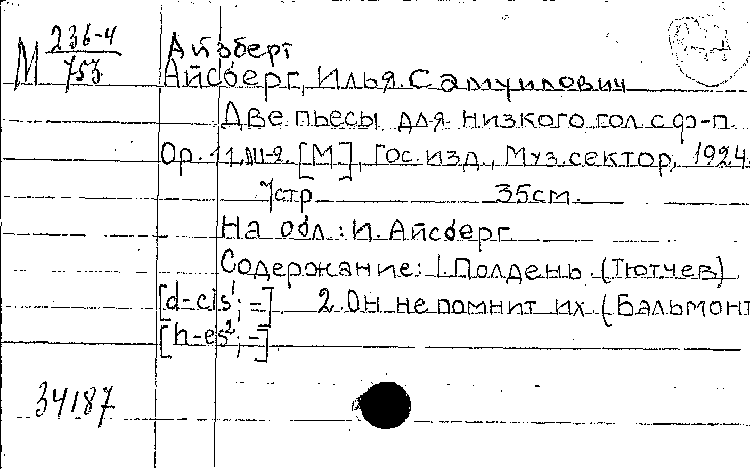 М 236-4
753
Айзберг
Айсберг, Илья Самуилович
Две пьесы для низкого гол. с ф-п.
Ор. 11. [М], Гос. изд., Муз. сектор, 1924.
7 стр 35 см.
На обл.: И. Айсберг
Содержание: 1. Полдень (Тютчев)
[d-cis¹; =] 2. Он не помнит их (Бальмонт
[h-es²; =]
34187